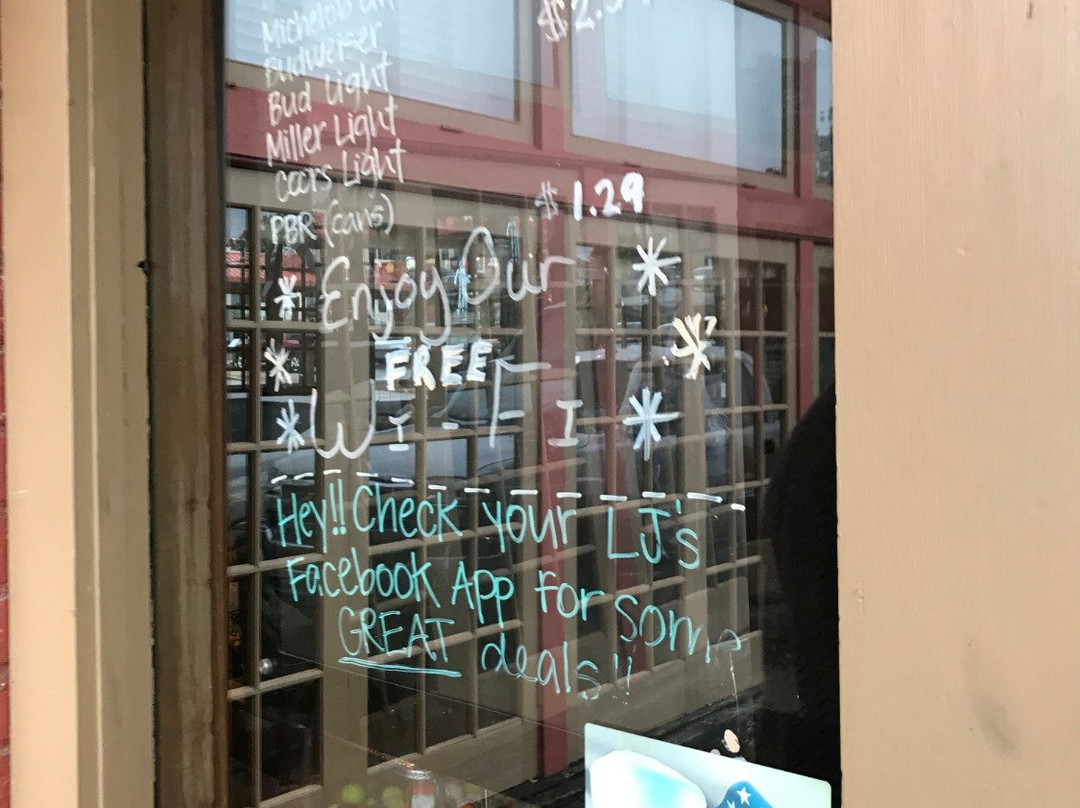 Michelob
$2.
Budweiser
Bud Light
Miller Light
Coors Light
PBR (cans) $1.29
* Enjoy Our *
* FREE *
* WI-FI *
Hey!! Check your LJ's
Facebook App for some
GREAT deals!!